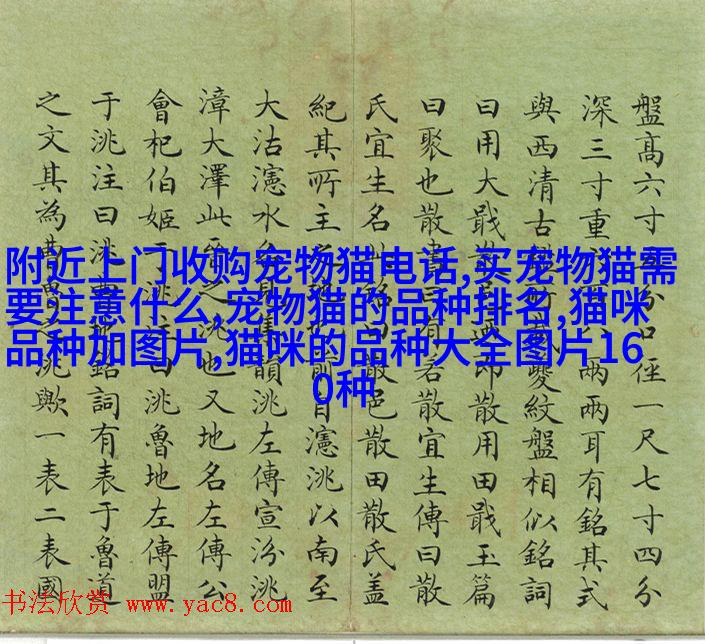 盤髙六寸分口徑一尺七寸四分
深三寸重兩兩耳有銘其式
與西清古夔紋盤相似銘詞
曰用大戢散用田戢玉篇
曰聚也散有若散宜生傳曰散
氏宜生名散邑散田散氏蓋
紀其所主前自瀗洮以南至
大沽瀗水韻洮左傳宣汾洮
漳大澤此洮也又地名左傳公
會杞伯姬于洮曰洮魯地左傳盟
于洮注曰洮地銘詞有表于魯道
之文其為洮歟一表二表國
附近上门收购宠物猫电话,买宠物猫需
要注意什么,宠物猫的品种排名,猫咪
品种加图片,猫咪的品种大全图片16
0种
书法欣赏 www.yac8.com